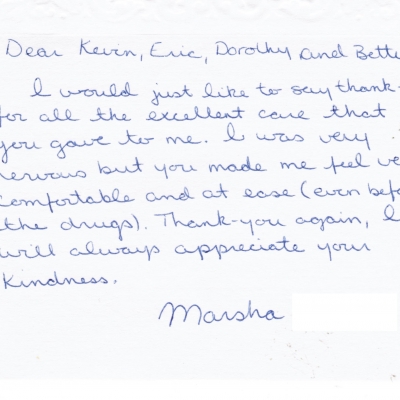 Dear Kevin, Eric, Dorothy and Bette
I would just like to say thank-
for all the excellent care that
you gave to me. I was very
nervous but you made me feel ve
comfortable and at ease (even befo
the drugs). Thank-you again, I
will always appreciate your
kindness.
Marsha